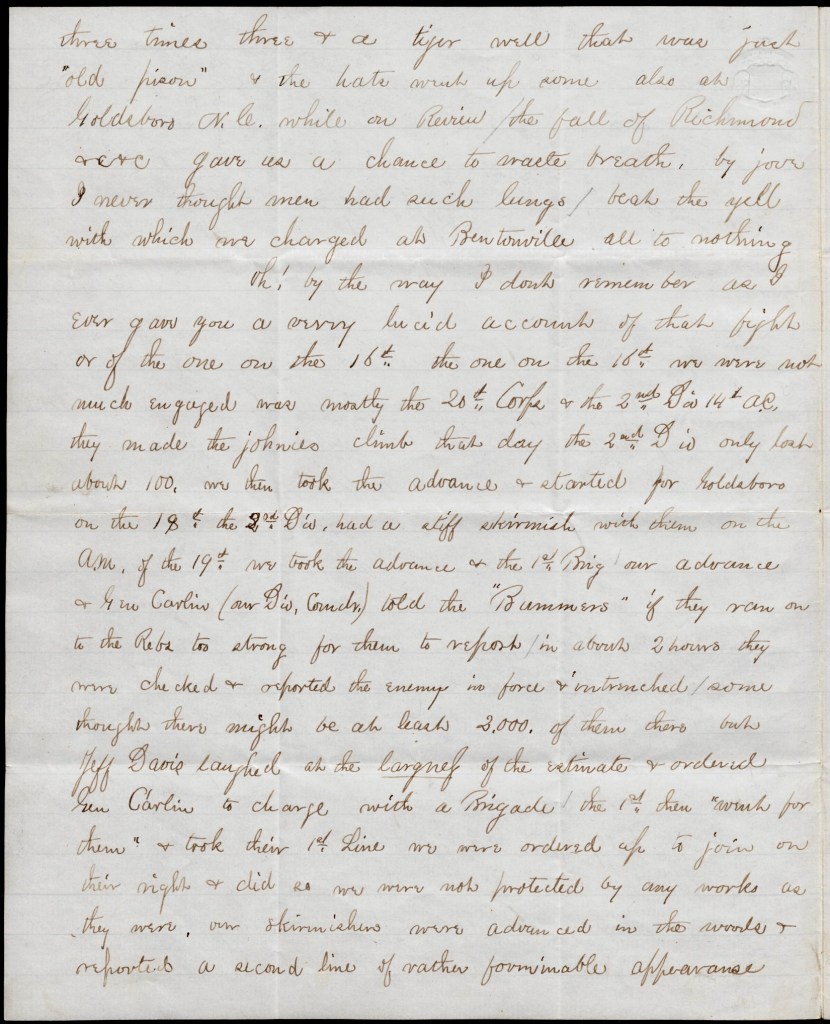 three times three & a tiger well that was just
"old pison" & the hats went up some also at
Goldsboro N.C. while on Review / the fall of Richmond
&c&c gave us a chance to waste breath, by jove
I never thought men had such lungs / beat the yell
with which we charged at Bentonville all to nothing
Oh! by the way I dont remember as I
ever gave you a verry lucid account of that fight
or of the one on the 16th. the one on the 16th we were not
much engaged was mostly the 20th Corps & the 2nd Div 14th A.C.
they made the johnies climb that day the 2nd Div only lost
about 100. we then took the advance & started for Goldsboro
on the 18th the 2nd Div. had a stiff skirmish with them on the
A.M. of the 19th we took the advance & the 1st Brig our advance
& Gen Carlin (our Div, Comdr,) told the "Bummers" if they ran on
to the Rebs too strong for them to report / in about 2 hours they
were checked & reported the enemy in force & intrenched / some
thought there might be at least 3,000. of them there but
Jeff Davis laughed at the largness of the estimate & ordered
Gen Carlin to charge with a Brigade / the 1st then "went for
them" & took their 1st Line we were ordered up to join on
their right & did so we were not protected by any works as
they were, our skirmishers were advanced in the woods &
reported a second line of rather forminable appearanse